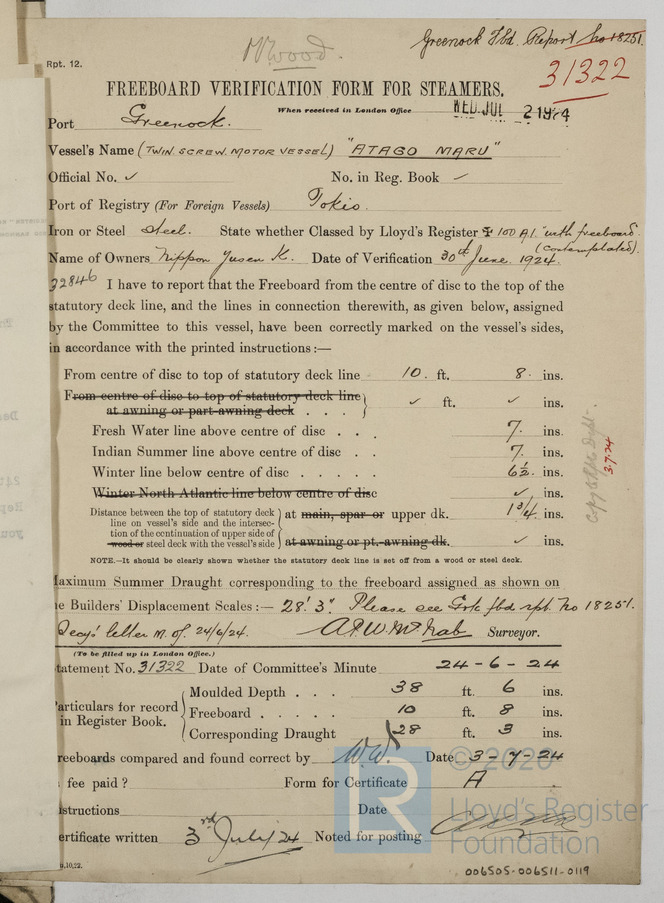 Greenock Fbd. Report No 18251.
Wood.
Rpt. 12.
31322
FREEBOARD VERIFICATION FORM FOR STEAMERS.
When received in London Office WED. JUL 2 1924
Port Greenock.
Vessel's Name (TWIN SCREW MOTOR VESSEL) "ATAGO MARU"
Official No. ✓ No. in Reg. Book ✓
Port of Registry (For Foreign Vessels) Tokio.
Iron or Steel Steel. State whether Classed by Lloyd's Register ✠ 100 A.1. "with freeboard.
(contemplated).
Name of Owners Nippon Yusen K. Date of Verification 30th June. 1924.
32846
I have to report that the Freeboard from the centre of disc to the top of the
statutory deck line, and the lines in connection therewith, as given below, assigned
by the Committee to this vessel, have been correctly marked on the vessel's sides,
in accordance with the printed instructions :—
From centre of disc to top of statutory deck line 10. ft. 8. ins.
From centre of disc to top of statutory deck line
at awning or part-awning deck . . . ✓ ft. ✓ ins.
Fresh Water line above centre of disc . . . 7. ins.
Indian Summer line above centre of disc . . 7. ins.
Winter line below centre of disc . . . . . 6½. ins.
Winter North Atlantic line below centre of disc ✓ ins.
Distance between the top of statutory deck
line on vessel's side and the intersec-
tion of the continuation of upper side of
wood or steel deck with the vessel's side
at main, spar or upper dk. 1 3/4. ins.
at awning or pt.-awning dk. ✓ ins.
3.7.24
NOTE.—It should be clearly shown whether the statutory deck line is set off from a wood or steel deck.
Maximum Summer Draught corresponding to the freeboard assigned as shown on
e Builders' Displacement Scales :— 28' 3". Please see Grk fbd rpt. No 18251.
Secy's letter M. of. 24/6/24. Surveyor.
(To be filled up in London Office.)
tatement No. 31322 Date of Committee's Minute 24-6-24
articulars for record
in Register Book.
Moulded Depth . . . 38 ft. 6 ins.
Freeboard . . . . . 10 ft. 8 ins.
Corresponding Draught 28 ft. 3 ins.
reeboards compared and found correct by W.W. Date 3-7-24
fee paid ? Form for Certificate A
nstructions Date
ertificate written 3rd July/24 Noted for posting
© 2020
LR
Lloyd's Register
Foundation
006505-006511-0119